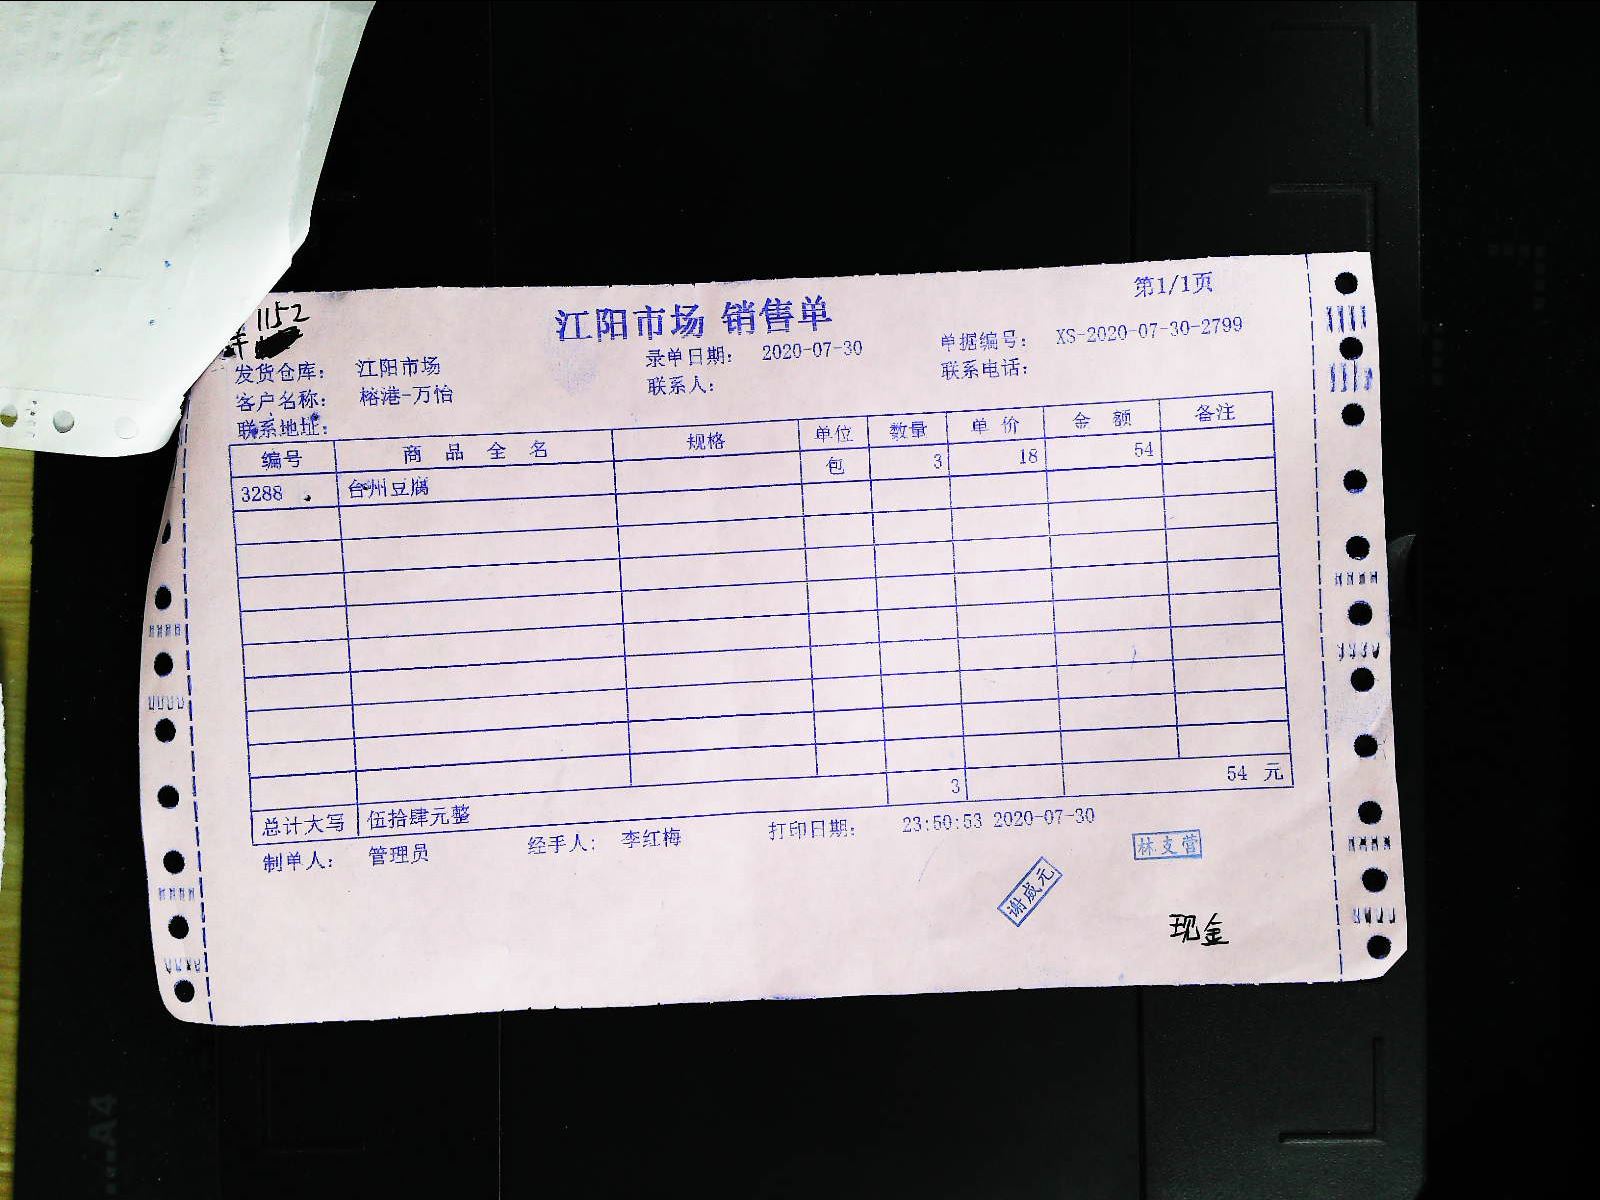 第1/1页
江阳市场 销售单
1152
录单日期： 2020-07-30
单据编号： XS-2020-07-30-2799
发货仓库： 江阳市场
联系人：
联系电话：
客户名称： 榕港-万怡
联系地址：
编号 商品全名 规格 单位 数量 单价 金额 备注
3288 台州豆腐 包 3 18 54
3 54 元
总计大写 伍拾肆元整
制单人： 管理员 经手人： 李红梅 打印日期： 23:50:53 2020-07-30
林支营
谢成元
现金
A4